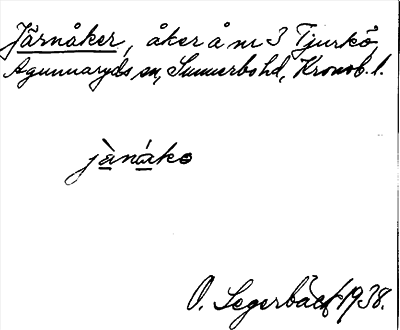 Järnåker, åker å nr 3 Tjurkö,
Agunnaryds sn, Sunnerbo hd, Kronob. l.
jànáko
O. Segerbäck 1938.